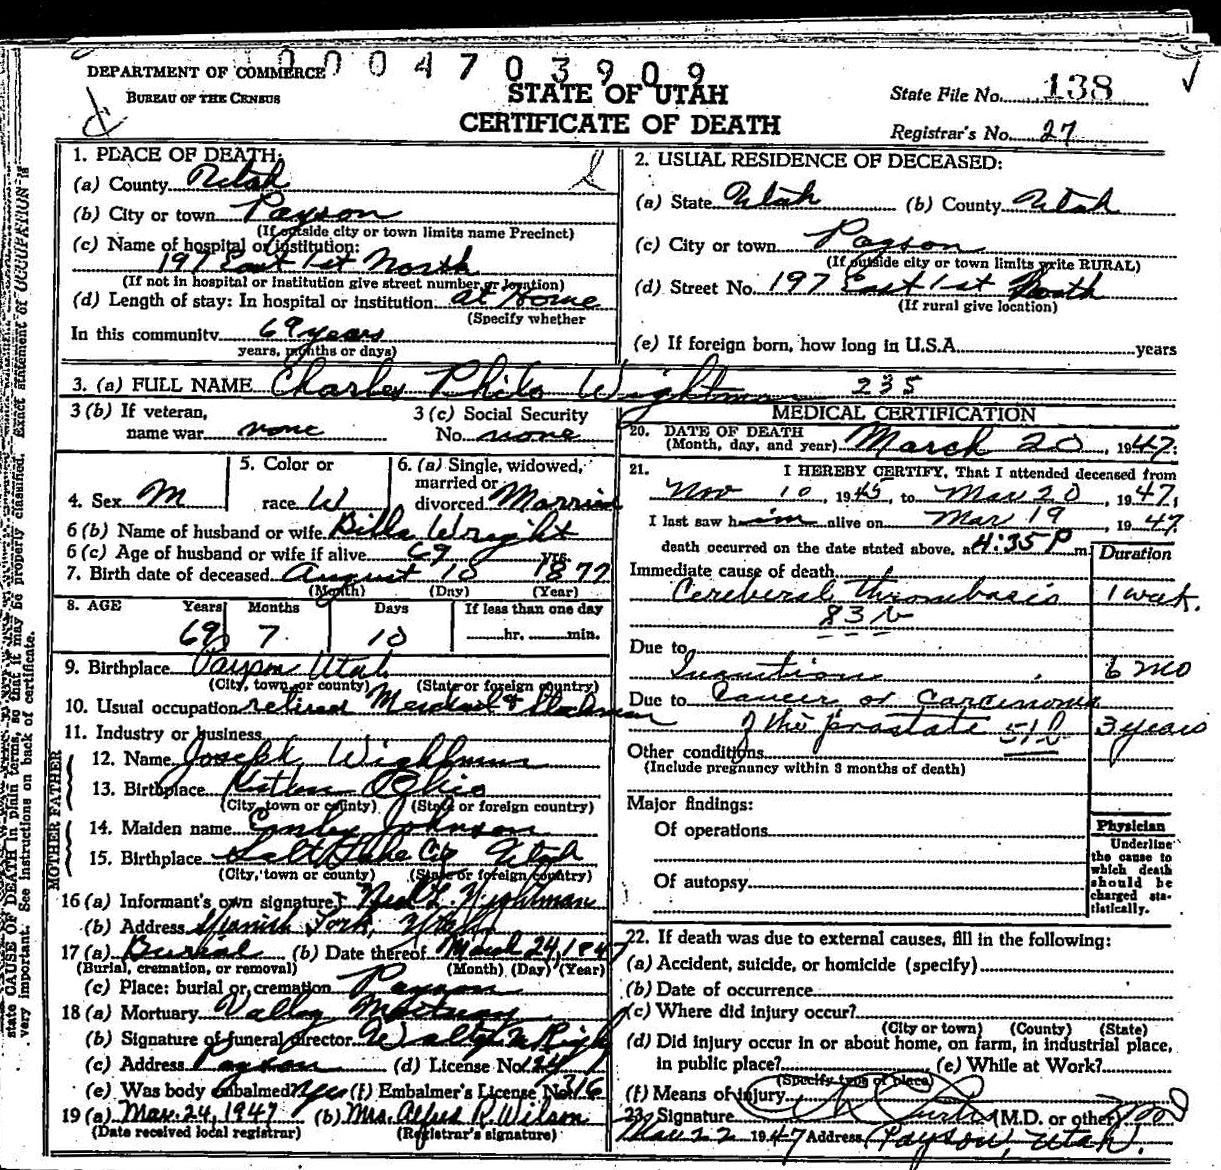 0004703909
DEPARTMENT OF COMMERCE
BUREAU OF THE CENSUS
STATE OF UTAH
CERTIFICATE OF DEATH
State File No. 138
Registrar's No. 27
1. PLACE OF DEATH:
(a) County Utah
(b) City or town Payson
(If outside city or town limits name Precinct)
(c) Name of hospital or institution:
197 East 1st North
(If not in hospital or institution give street number or location)
(d) Length of stay: In hospital or institution at Home
(Specify whether
In this community 69 years
years, months or days)
2. USUAL RESIDENCE OF DECEASED:
(a) State Utah (b) County Utah
(c) City or town Payson
(If outside city or town limits write RURAL)
(d) Street No. 197 East 1st North
(If rural give location)
(e) If foreign born, how long in U.S.A. years
3. (a) FULL NAME Charles Philo Wightman 235
3 (b) If veteran,
name war none
3 (c) Social Security
No. none
4. Sex M
5. Color or
race W
6. (a) Single, widowed,
married or
divorced Married
6 (b) Name of husband or wife Bills Wright
6 (c) Age of husband or wife if alive 69 yrs.
7. Birth date of deceased August 10 1877
(Month) (Day) (Year)
8. AGE Years Months Days If less than one day
69 7 10 hr. min.
9. Birthplace Payson Utah
(City, town or county) (State or foreign country)
10. Usual occupation retired Merchant & Stockman
11. Industry or business
FATHER
12. Name Joseph Wightman
13. Birthplace Ohio
(City, town or county) (State or foreign country)
MOTHER
14. Maiden name Johnson
15. Birthplace Salt Lake City Utah
(City, town or county) (State or foreign country)
16 (a) Informant's own signature Wightman
(b) Address Spanish Fork, Utah
17 (a) Burial (b) Date thereof March 24, 1947
(Burial, cremation, or removal) (Month) (Day) (Year)
(c) Place: burial or cremation Payson
18 (a) Mortuary Valley Mortuary
(b) Signature of funeral director
(c) Address Payson (d) License No. 1241
(e) Was body embalmed? Yes (f) Embalmer's License No. 316
19 (a) Mar. 24, 1947 (b) Mrs. Alfred R. Wilson
(Date received local registrar) (Registrar's signature)
MEDICAL CERTIFICATION
20. DATE OF DEATH
(Month, day, and year) March 20, 1947.
21. I HEREBY CERTIFY, That I attended deceased from
Nov 10, 1945, to Mar 20, 1947,
I last saw him alive on Mar 19, 1947.
death occurred on the date stated above, at 4:35 P m.
Duration
Immediate cause of death
Cerebral thrombosis 1 week.
83b
Due to
Inanition 6 mo
Due to Cancer or Carcinoma
of the prostate 51b 3 years
Other conditions
(Include pregnancy within 3 months of death)
Major findings:
Of operations
Of autopsy
Physician
Underline
the cause to
which death
should be
charged sta-
tistically.
22. If death was due to external causes, fill in the following:
(a) Accident, suicide, or homicide (specify)
(b) Date of occurrence
(c) Where did injury occur?
(City or town) (County) (State)
(d) Did injury occur in or about home, on farm, in industrial place,
in public place? (e) While at Work?
(Specify type of place)
(f) Means of Injury
23. Signature Curtis (M.D. or other)
Mar 22 1947 Address Payson, Utah.
state CAUSE OF DEATH in plain terms, so that it may be properly classified. Exact statement of OCCUPATION is
very important. See instructions on back of certificate.